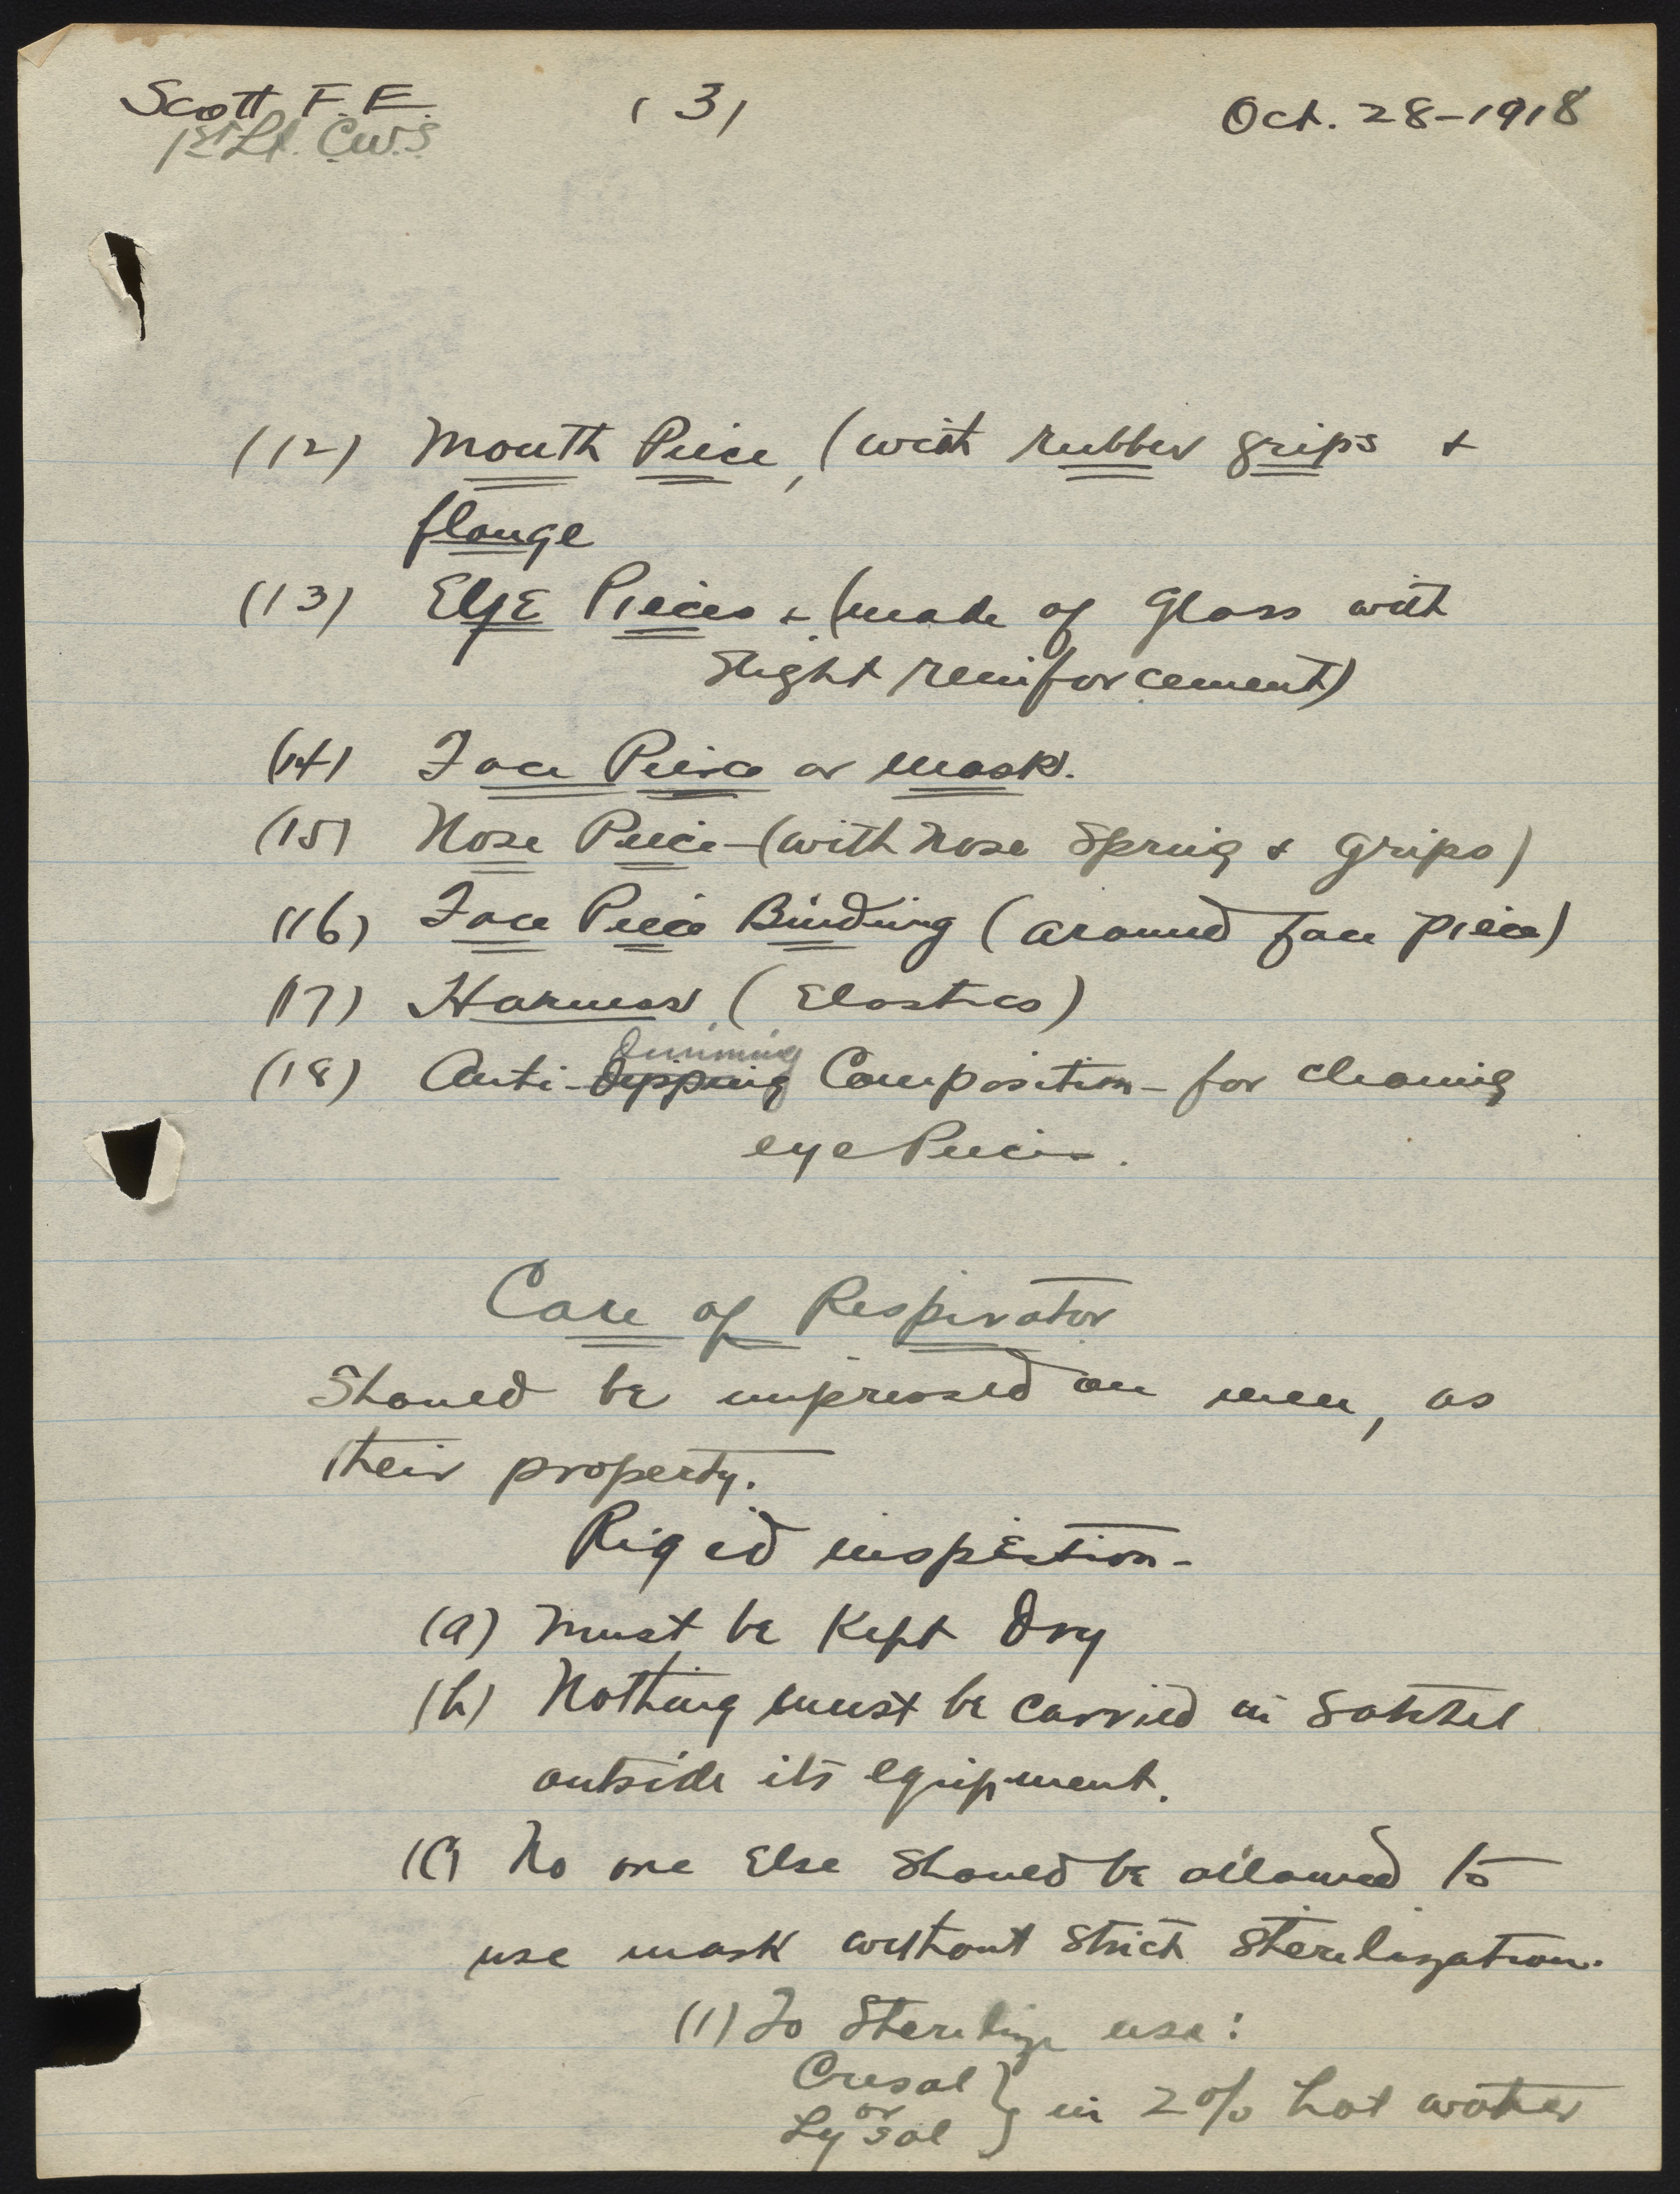 Scott, F. E. (3) Oct. 28-1918
1st Lt. C.W.S
(12) Mouth Piece, (with rubber grips +
flange
(13) EyE Pieces - (made of Glass with
Slight reinforcement)
(14) Face Piece or Mask.
(15) Nose Piece - (with nose Spring & grips)
(16) Face Piece Binding (around face piece)
(17) Harness, (Elastics)
dimming
(18) Anti-Dipping Composition - for cleaning
eye Pieces.
Care of Respirator
Should be impressed on men, as
their property.
Rigid inspection -
(a) Must be Kept Dry
(b) Nothing must be carried in Satchel
outside its equipment.
(c) No one Else Should be allowed to
use mask without Strict Sterilization.
(1) To Sterilize use:
Cresol
or } in 2% hot water
Lysol